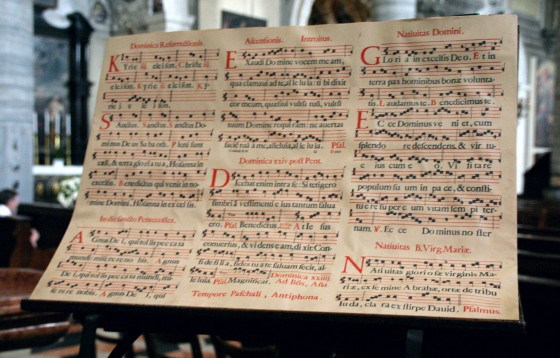 Dominica Resurrectionis.
Kyrie eleison. Christe
eleison. Kyrie eleison. Ky-
rie eleison.
Sanctus, sanctus Do-
minus Deus Sabaoth. Pleni sunt
cæli, & terra gloria tua, Hosanna in
excelsis. Benedictus qui venit in no-
mine Domini. Hosanna in excelsis.
In die sancto Pentecostes.
Agnus De i, qui tollis peccata
mundi: miserere nobis. Agnus
De i, qui tollis peccata mundi, mi-
serere nobis. Agnus De i, qui
Ascensionis. Introitus.
Exaudi Domine vocem meam,
qua clamavi ad te, alleluia: tibi dixit
cor meum, quæsivi vultum tuum, vultum
tuum Domine requiram: ne avertas
faciem tuam a me, alleluia, alleluia. Psal.
Dominica xxiv post Pent.
Dicebat enim intra se: Si tetigero
fimbriam vestimenti ejus tantum salva
ero. Psal. Benedictus. At Jesus
conversus, & videns eam, dixit: Con-
fide filia, fides tua te salvam fecit, al-
leluia. Psal. Magnificat. Dominica xxiiii
Ad Bñs, Aña
Tempore Paschali, Antiphona.
Nativitas Domini.
Gloria in excelsis Deo. Et in
terra pax hominibus bonæ volunta-
tis. Laudamus te. Benedicimus te.
Ecce Dominus veni et, cum
splendore descendens, & virtu
ejus cum eo. Visitare
populum suum in pace, & consti-
tuere super eum vitam sempiter-
nam. V. Ecce Dominus noster
Nativitas B. Virg. Mariæ.
Nativitas gloriosæ virginis Ma-
riæ, ex semine Abrahæ, ortæ de tribu
Juda, clara ex stirpe David. Psalmus.